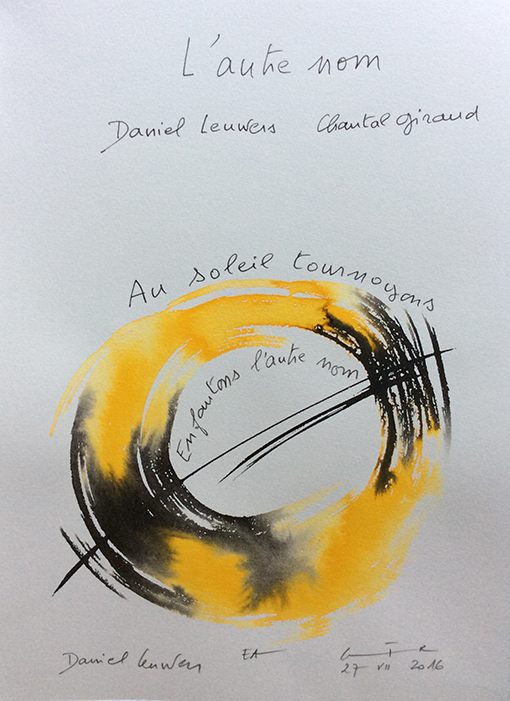 L'autre nom
Daniel Leuwers Chantal Giraud
Au soleil tournoyons
Enfantons l'autre nom
Daniel Leuwers EA
27 VII 2016